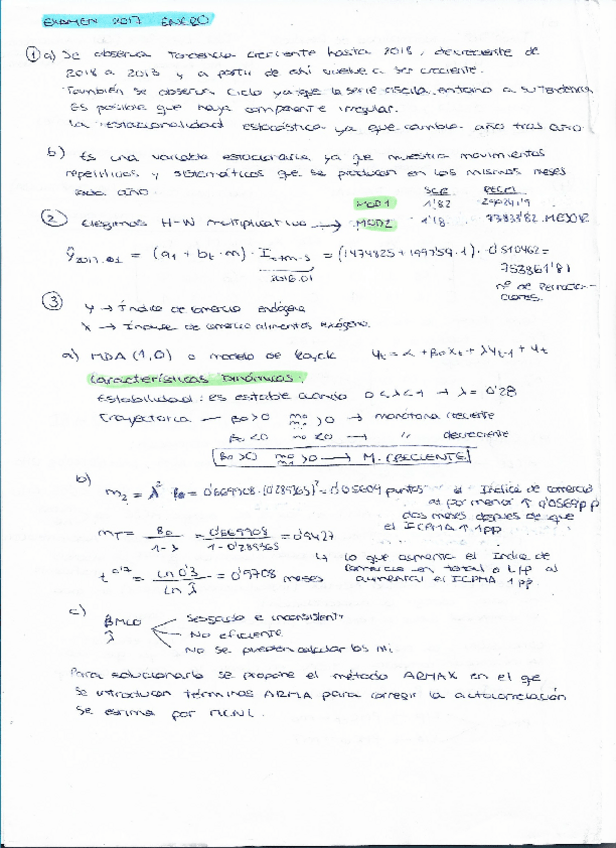 EXAMEN 2017 ENERO
① a) Se observa tendencia creciente hasta 2018, decreciente de
2018 a 2013 y a partir de ahí vuelve a ser creciente.
También se observa ciclo ya que la serie oscila entorno a su tendencia
Es posible que haya componente irregular.
La estacionalidad estocástica ya que cambia años tras año.
b) Es una variable estacionaria ya que muestra movimientos
repetitivos y sistemáticos que se producen en los mismos meses
cada año.
MOD1 1'82
② Elegimos H-W multiplicativo → MOD2 1'18 MEJOR
ŷ2017.01 = (a1 + bt·m) · It+m-s = (1474825 + 199754·1) · 0'510462 =
2016.01
753861'81
nº de
③ y → Índice de comercio endógena
x → Índice de comercio alimentos exógeno.
a) MDA (1,0) o modelo de Koyck yt = α + β0xt + λyt-1 + ut
Características Dinámicas:
Estabilidad: es estable cuando 0<λ<1 → λ = 0'28
Trayectoria — β0>0 >0 → monótona creciente
β0<0 <0 → " decreciente
β0>0 >0 → M. CRECIENTE
b) m2 = λ² β0 = 0'669908·(0'289365)² = 0'05609 puntos el Índice de comercio
al por menor ↑ 0'0569 p.p
dos meses después de que
el ICPMA ↑ 1pp
mT = β0 / 1-λ = 0'669908 / 1-0'289365 = 0'9427
↳ lo que aumenta el Índice de
comercio en total a LP al
aumentar el ICPMA 1 pp.
t0'7 = ln 0'3 / ln λ̂ = 0'9708 meses
c) βMCO
λ̂
Sesgado e inconsistente
No eficiente
No se pueden calcular los mi
Para solucionarlo se propone el método ARMAX en el qe
se introducen términos ARMA para corregir la autocorrelación
Se estima por MCNL.